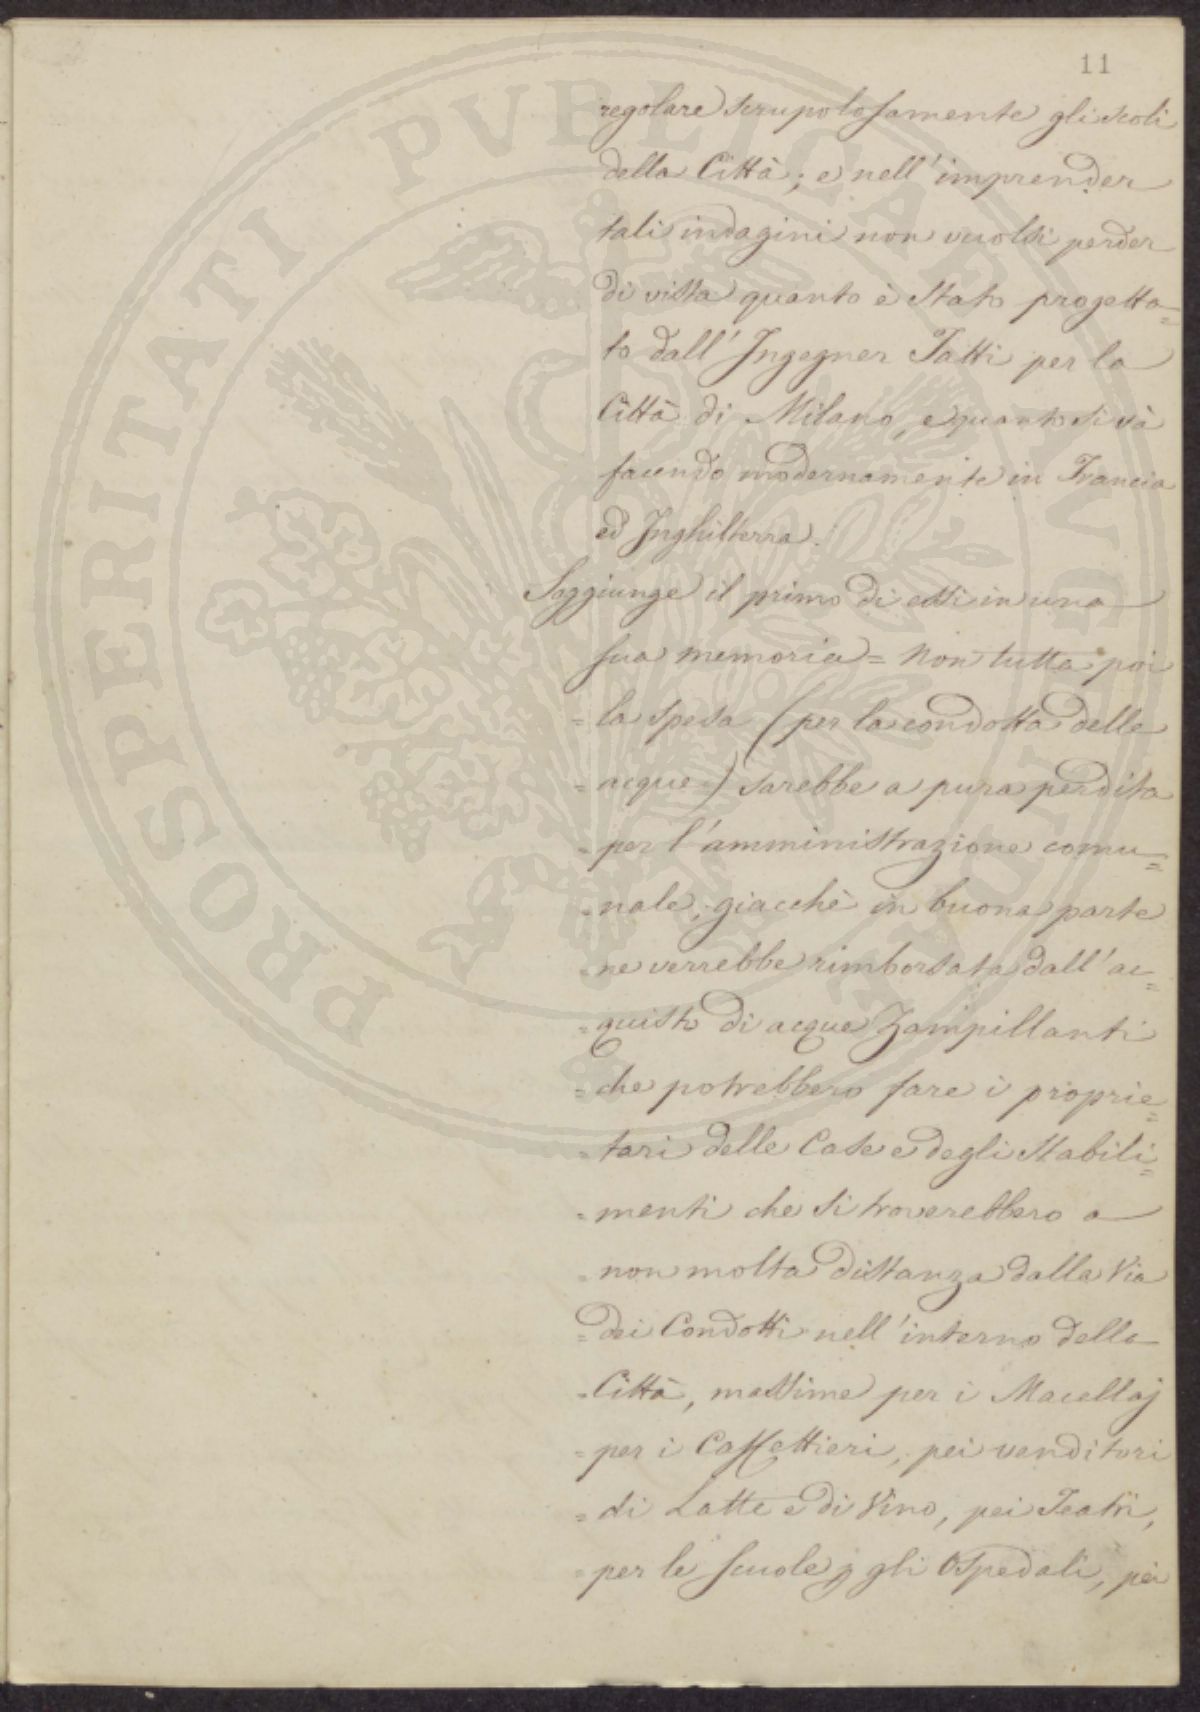 11
regolare scrupolosamente gli scoli
della Città; e nell'imprender
tali indagini non vuolsi perder
di vista quanto è stato progetta=
to dall'Ingegner Tatti per la
Città di Milano, e quanto si và
facendo modernamente in Francia
ed Inghilterra.
Soggiunge il primo di essi in una
sua memoria = Non tutta poi
= la spesa (per la condotta delle
= acque) sarebbe a pura perdita
= per l'amministrazione comu=
= nale, giacchè in buona parte
= ne verrebbe rimborsata dall'ac=
= quisto di acque Zampillanti
= che potrebbero fare i proprie=
= tari delle Case e degli Stabili=
= menti che si troverebbero a
= non molta distanza dalla Via
= dei Condotti nell'interno della
= Città, massime per i Macellaj
= per i Caffettieri, pei venditori
= di Latte e di Vino, pei Teatri,
= per le Scuole, gli Ospedali, pei
PROSPERITATI PVBLICAE AVGENDAE